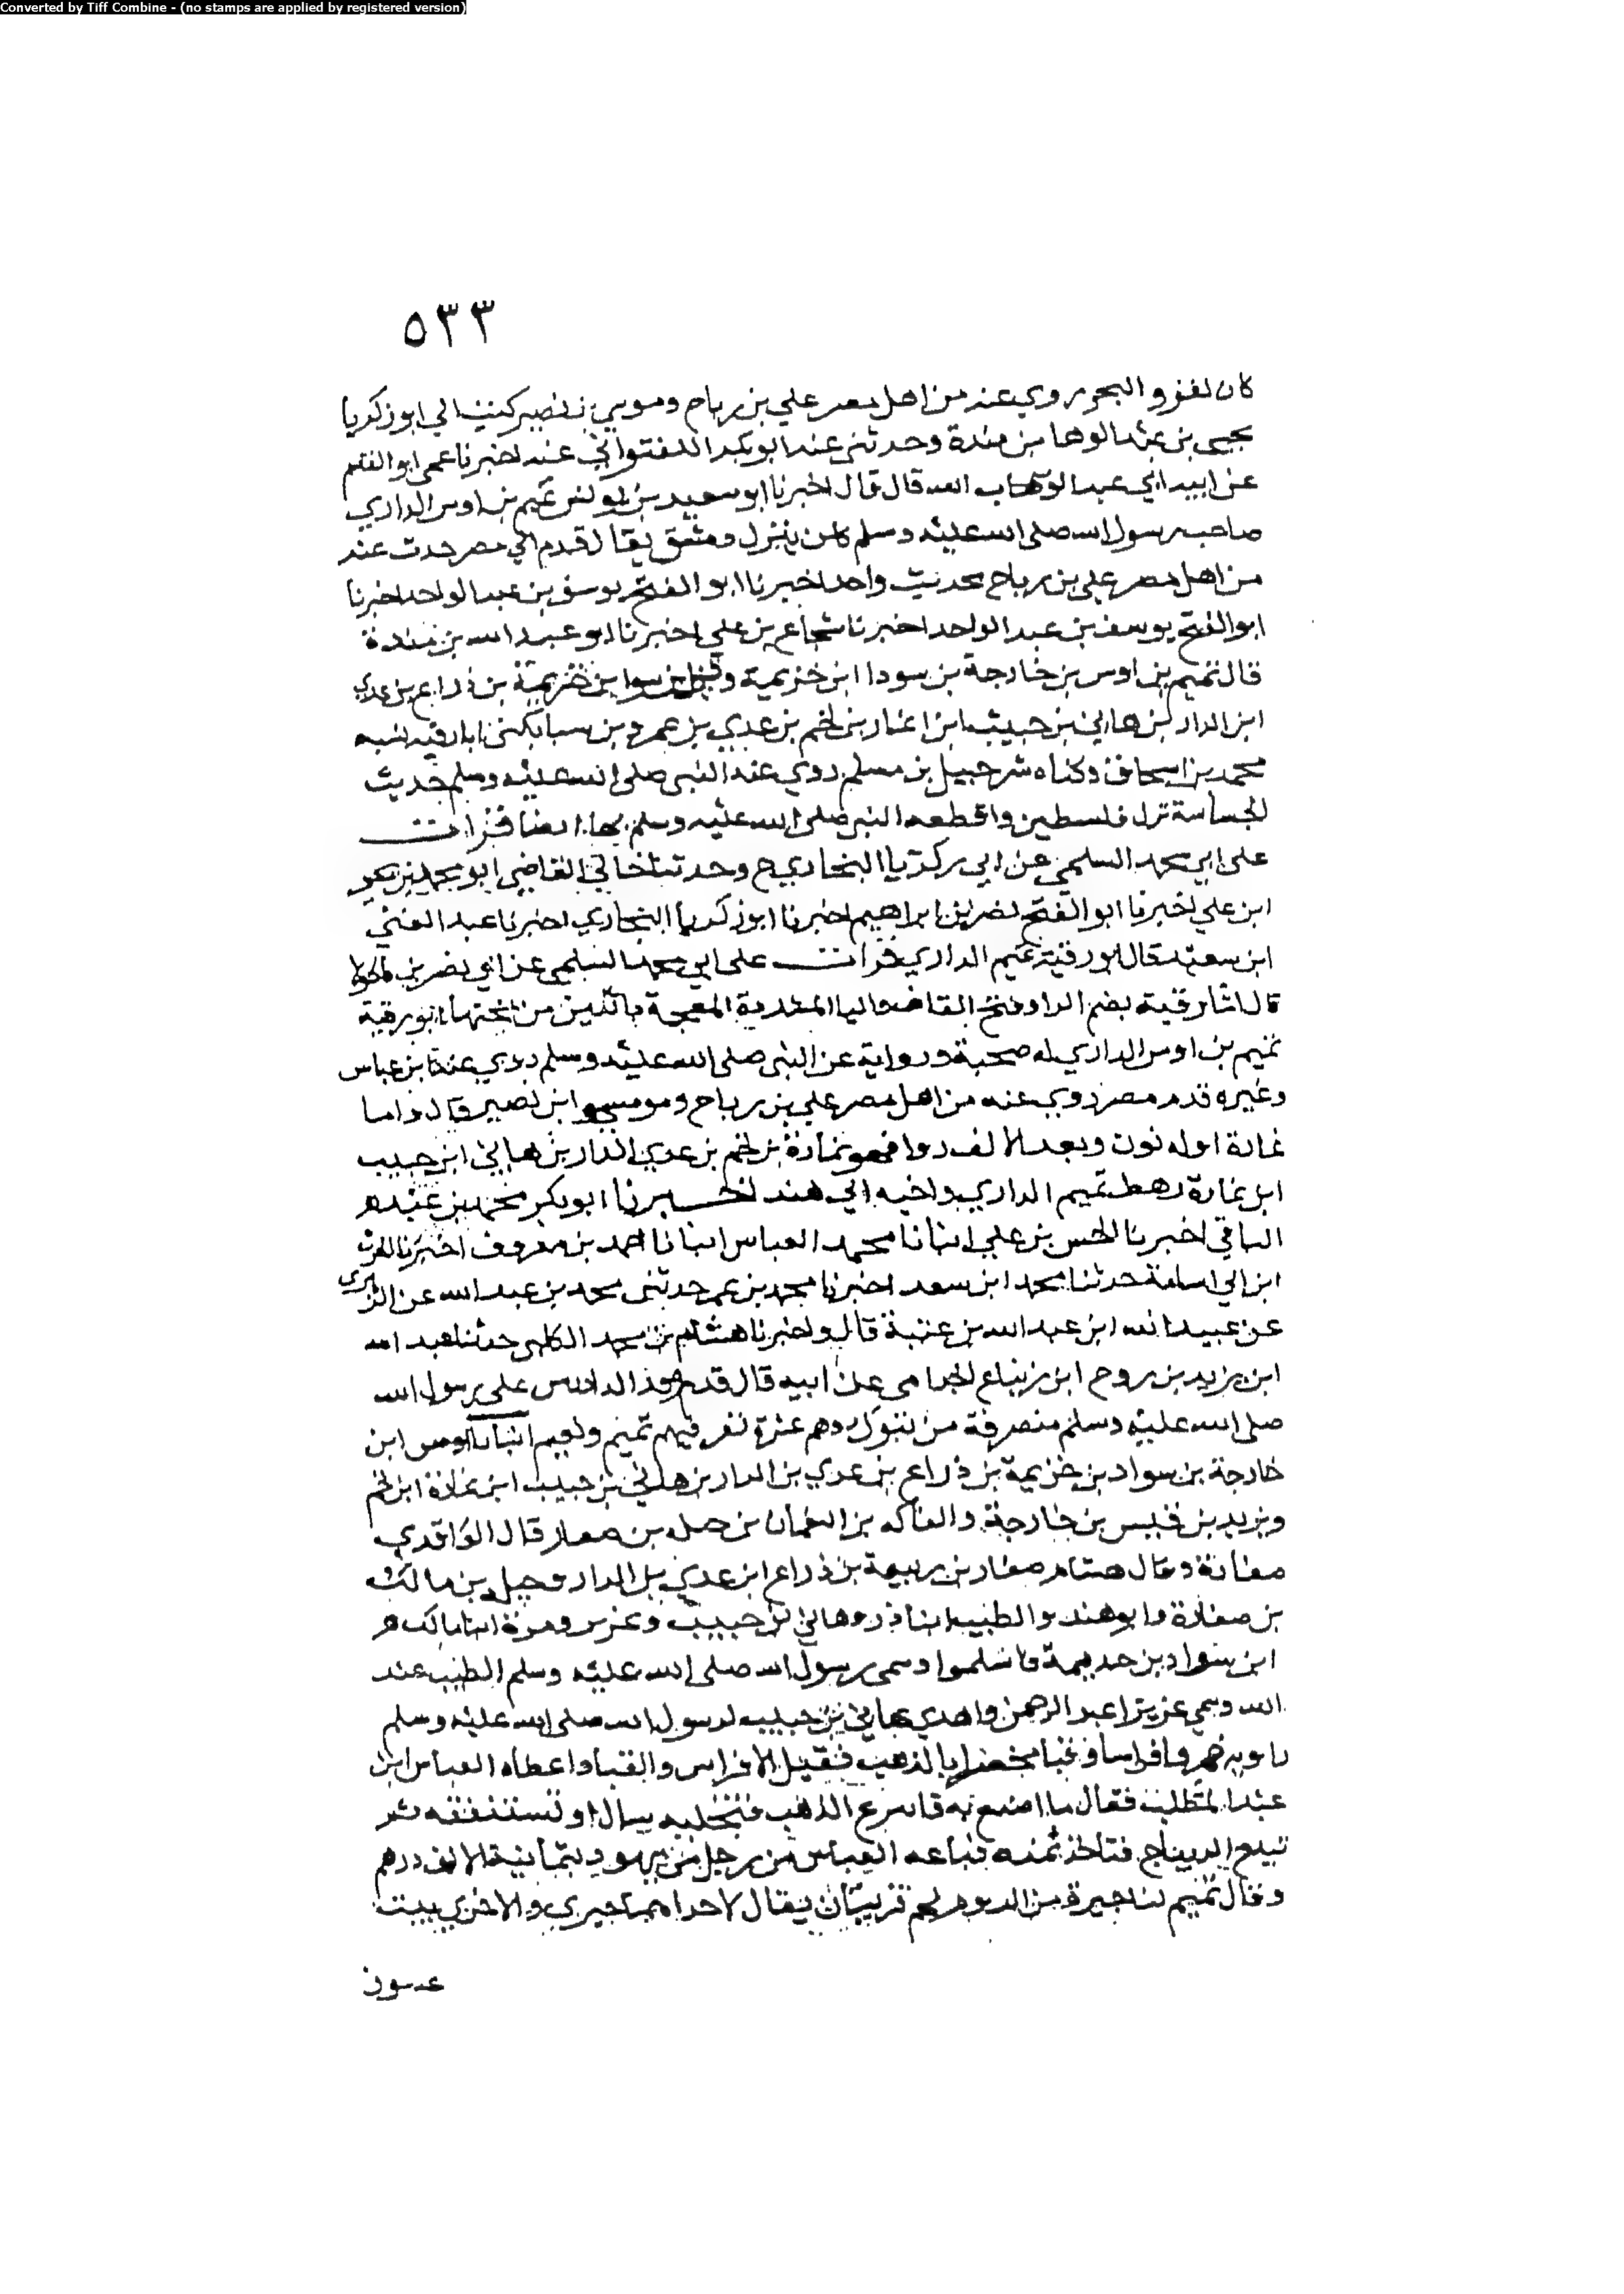 Converted by Tiff Combine - (no stamps are applied by registered version)
٥٣٣
كان لغزو البحر روي عنه من اهل مصر علي بن رباح وموسي بن نصير كتب الي ابو زكريا
يحيى بن عبد الوهاب بن مندة وحدثني عنه ابو بكر اللفتواني عنه اخبرنا عمى ابو القاسم
عن ابيه ابي عبد الله قال قال اخبرنا ابو سعيد بن يونس تميم بن اوس الداري
صاحب رسول الله صلى الله عليه وسلم كان ينزل دمشق يقال قدم الي مصر حدث عنه
من اهل مصر علي بن رباح بحديث واحد اخبرنا ابو الفتح يوسف بن عبد الواحد اخبرنا
ابو الفتح يوسف بن عبد الواحد اخبرنا شجاع بن علي اخبرنا ابو عبد الله بن مندة
قال تميم بن اوس بن خارجة بن سودا ابن خزيمة وقيل بن سواد بن خزيمة بن ذراع بن عدي
ابن الدار بن هاني بن حبيب ابن انمار بن لخم بن عدي بن عمرو بن سبا يكنى ابا رقيه نسبه
محمد بن اسحاق وكناه شرحبيل بن مسلم روي عنه النبي صلى الله عليه وسلم حديث
الجساسة نزل فلسطين واقطعه النبي صلى الله عليه وسلم بها ارضا قرات
على ابي محمد السلمي عن ابي زكريا البخاري ح وحدثنا خالي القاضي ابو محمد بن يحي
ابن علي اخبرنا ابو الفتح نصر بن ابراهيم اخبرنا ابو زكريا البخاري اخبرنا عبد الغني
ابن سعيد قال ابو رقية تميم الداري قرات على ابي محمد السلمي عن ابي نصر بن ماكولا
قال اما رقية بضم الرا وفتح القاف واليا المشددة المعجمة باثنين من تحتها ابو رقية
تميم بن اوس الداري له صحبة ورواية عن النبي صلى الله عليه وسلم روي عنه ابن عباس
وغيره قدم مصر روي عنه من اهل مصر علي بن رباح وموسي ابن نصير قال واما
نمارة اوله نون وبعد الالف را فهو نمارة بن لخم بن عدي الدار بن هاني ابن حبيب
ابن نمارة رهط تميم الداري واخيه ابي هند اخبرنا ابو بكر محمد بن عبد
الباقي اخبرنا الحسن بن علي انبانا محمد العباس انبانا احمد بن معروف اخبرنا الحرث
ابن ابي اسامة حدثنا محمد ابن سعد اخبرنا محمد بن عمر حدثني محمد بن عبد الله عن الزهري
عن عبيد الله ابن عبد الله بن عتبة قال واخبرنا هشام بن محمد الكلبي حدثنا عبد الله
ابن يزيد بن روح ابن زنباع الجذامي عن ابيه قال قدم وفد الداريين على رسول الله
صلى الله عليه وسلم منصرفة من تبوك وهم عشرة نفر فيهم تميم ونعيم ابنا اوس ابن
خارجة بن سواد بن خزيمة بن ذراع بن عدي بن الدار بن هاني بن حبيب ابن نمارة ابن لخم
ويزيد بن قيس بن خارجة والفاكه بن النعمان بن جبله بن صفار قال الواقدي
صفارة وقال هشام صفار بن ربيعة بن ذراع ابن عدي بن الدار وجبله بن مالك
بن صفارة وابو هند والطيب ابنا ذر وهاني بن حبيب وعزيز ومرة ابنا مالك
ابن سواد بن جذيمة فاسلموا وسمى رسول الله صلى الله عليه وسلم الطيب عبد
الله وسمي عزيزا عبد الرحمن واهدي هاني بن حبيب لرسول الله صلى الله عليه وسلم
راويه خمر وافراسا وقبا مخوصا بالذهب فقبل الافراس والقبا واعطاه العباس ابن
عبد المطلب فقال ما اصنع به قال انزع الذهب فتحليه نساك او تستنفقه ثم
تبيع الديباج فتاخذ ثمنه فباعه العباس من رجل من يهود بثمانية الالف درهم
وقال تميم لنا جيرة من الروم لهم قريتان يقال لاحداهما حبري والاخري بيت
عينون